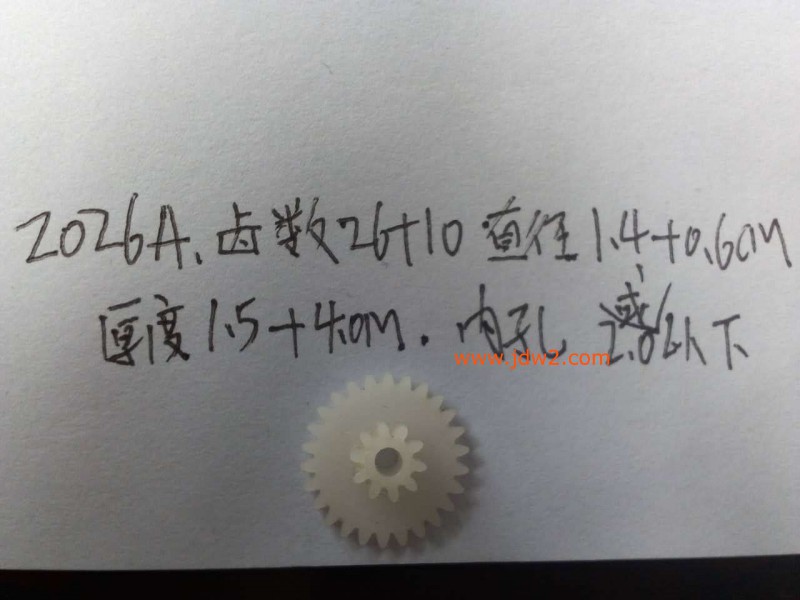 2026A.齿数26+10 直径1.4+0.6cm
厚度1.5+4.0m.内孔 2.0以下
www.jdw2.com